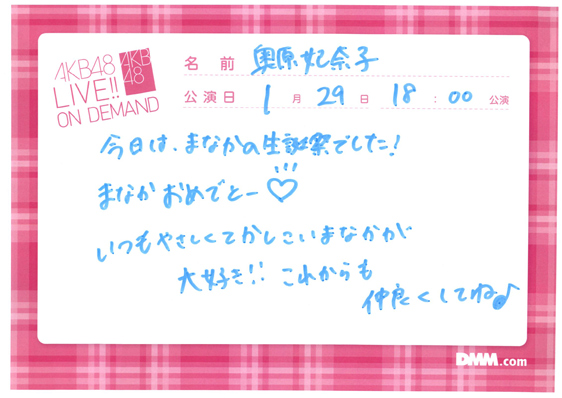 AKB48
LIVE!!
ON DEMAND
AKB
48
名前 奥原妃奈子
公演日 1月29日 18:00公演
今日は、まなかの生誕祭でした!
まなかおめでとー♡!!!
いつもやさしくてかしこいまなかが
大好き!! これからも
仲良くしてね♪
DMM.com